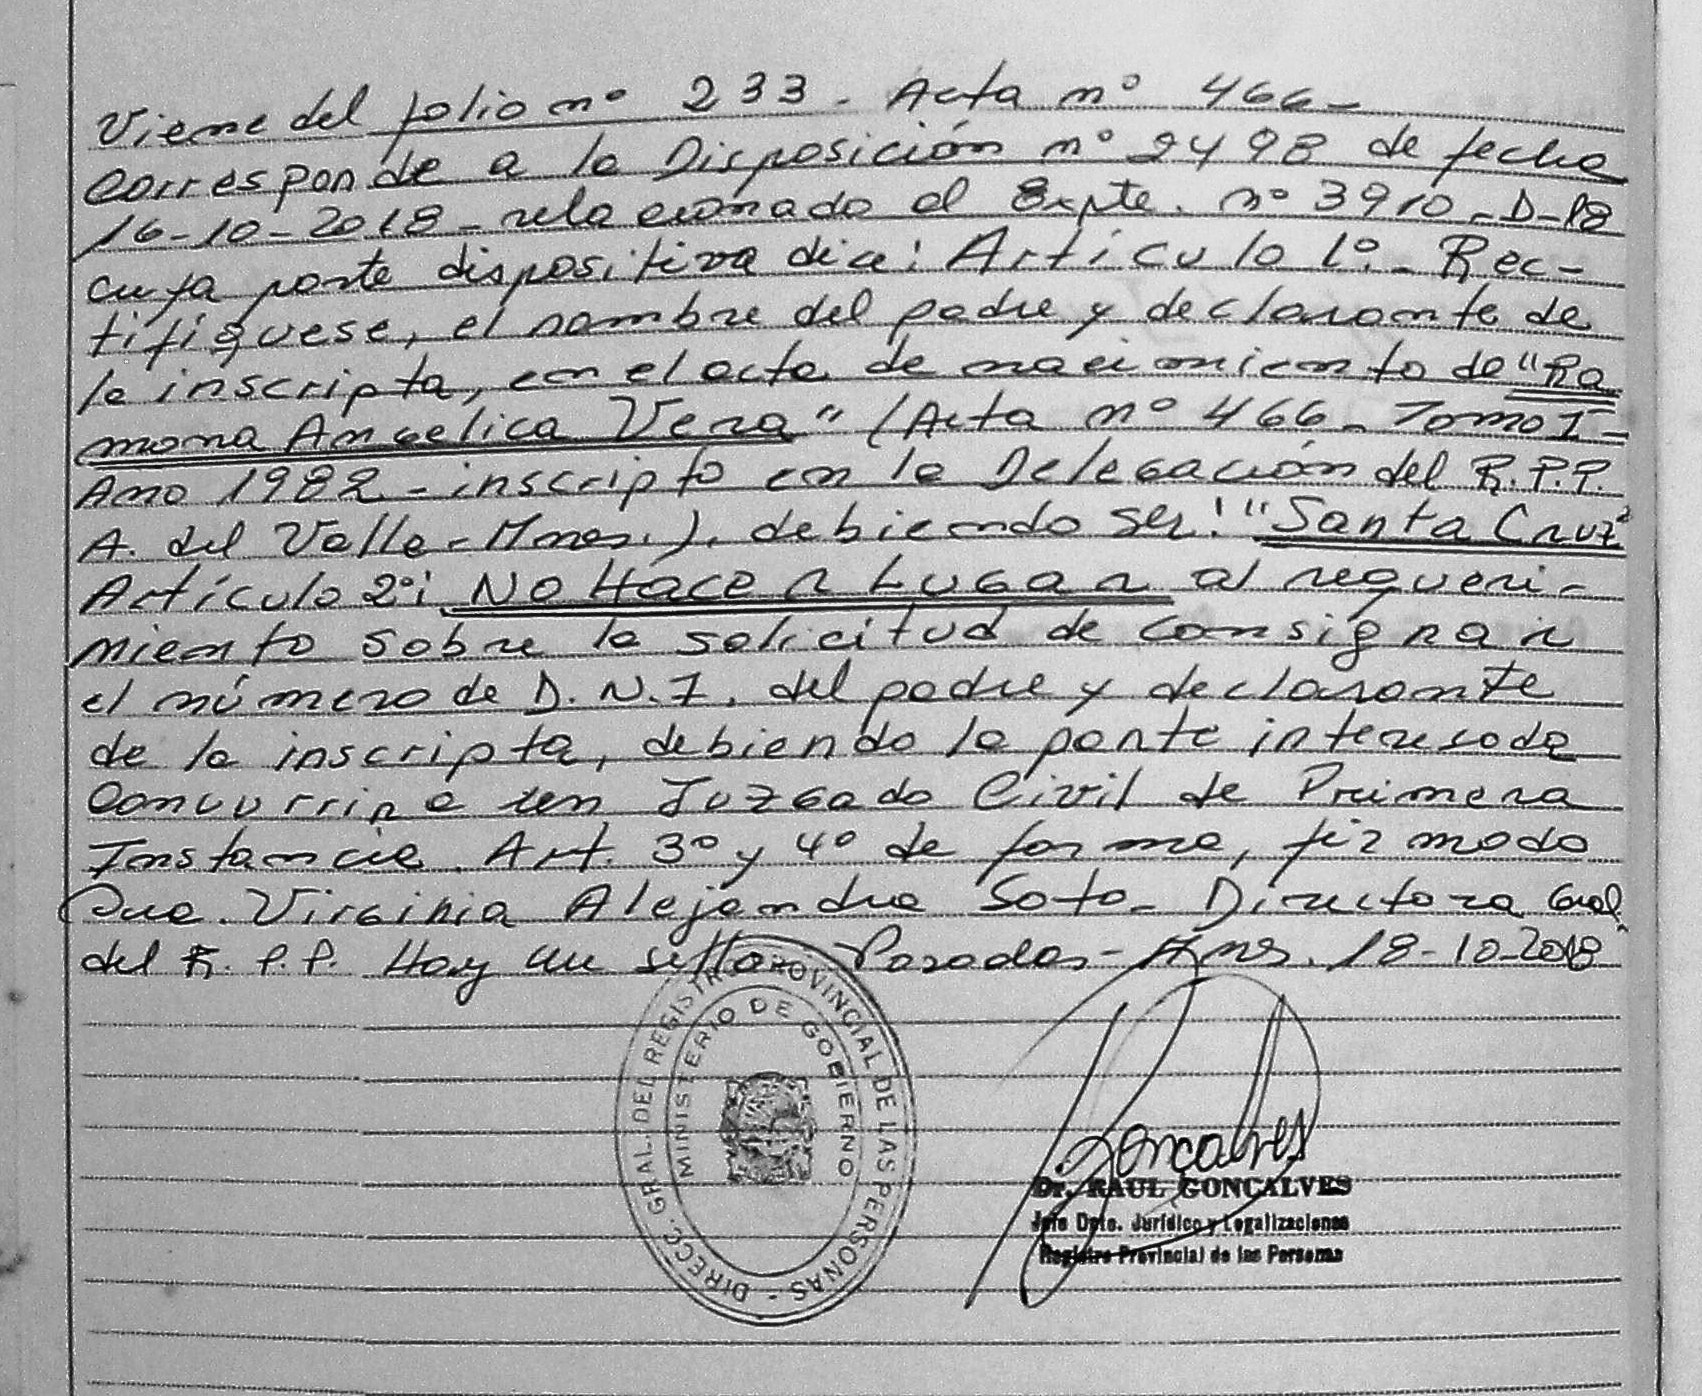 Viene del folio nº 233 - Acta nº 466 -
Corresponde a la Disposición nº 2498 de fecha
16-10-2018 - relacionado al Expte. nº 3910-D-18
cuya parte dispositiva dice: Artículo 1º - Rec-
tifíquese, el nombre del padre y declarante de
la inscripta, en el acta de nacimiento de "Ra
mona Angelica Vera" (Acta nº 466 - Tomo I -
Año 1982 - inscripto en la Delegación del R.P.P.
A. del Valle - Mnes.), debiendo ser: "Santa Cruz"
Artículo 2º: No Hacer Lugar al requeri-
miento sobre la solicitud de consignar
el número de D.N.I. del padre y declarante
de la inscripta, debiendo la parte interesada
concurrir a un Juzgado Civil de Primera
Instancia. Art. 3º y 4º de forma, firmado
Dra. Virginia Alejandra Soto - Directora Gral.
del R.P.P. Hay un sello - Posadas - Mnes. 18-10-2018
DIRECC. GRAL. DEL REGISTRO PROVINCIAL DE LAS PERSONAS -
MINISTERIO DE GOBIERNO
Goncalves
Dr. RAUL GONÇALVES
Jefe Dpto. Jurídico y Legalizaciones
Registro Provincial de las Personas